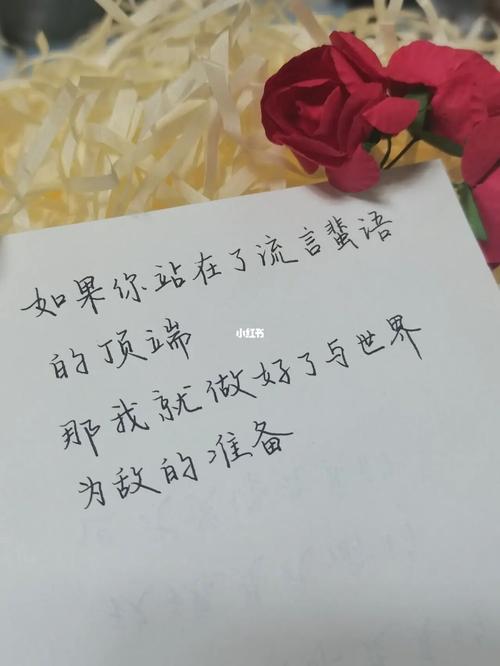 如果你站在了流言蜚语
小红书
的顶端
那我就做好了与世界
为敌的准备